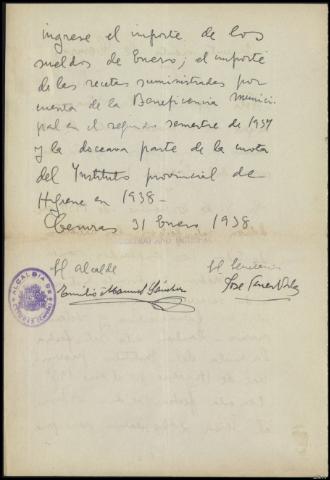 ingrese el importe de los
sueldos de Enero; el importe
de las recetas suministradas por
cuenta de la Beneficencia munici
pal en el segundo semestre de 1937
y la doceava parte de la cuota
del Instituto provincial de
Higiene en 1938.-
31 Enero 1938
El alcalde
El Secretario
Emilio Manuel Sánchez
José
ALCALDIA DE